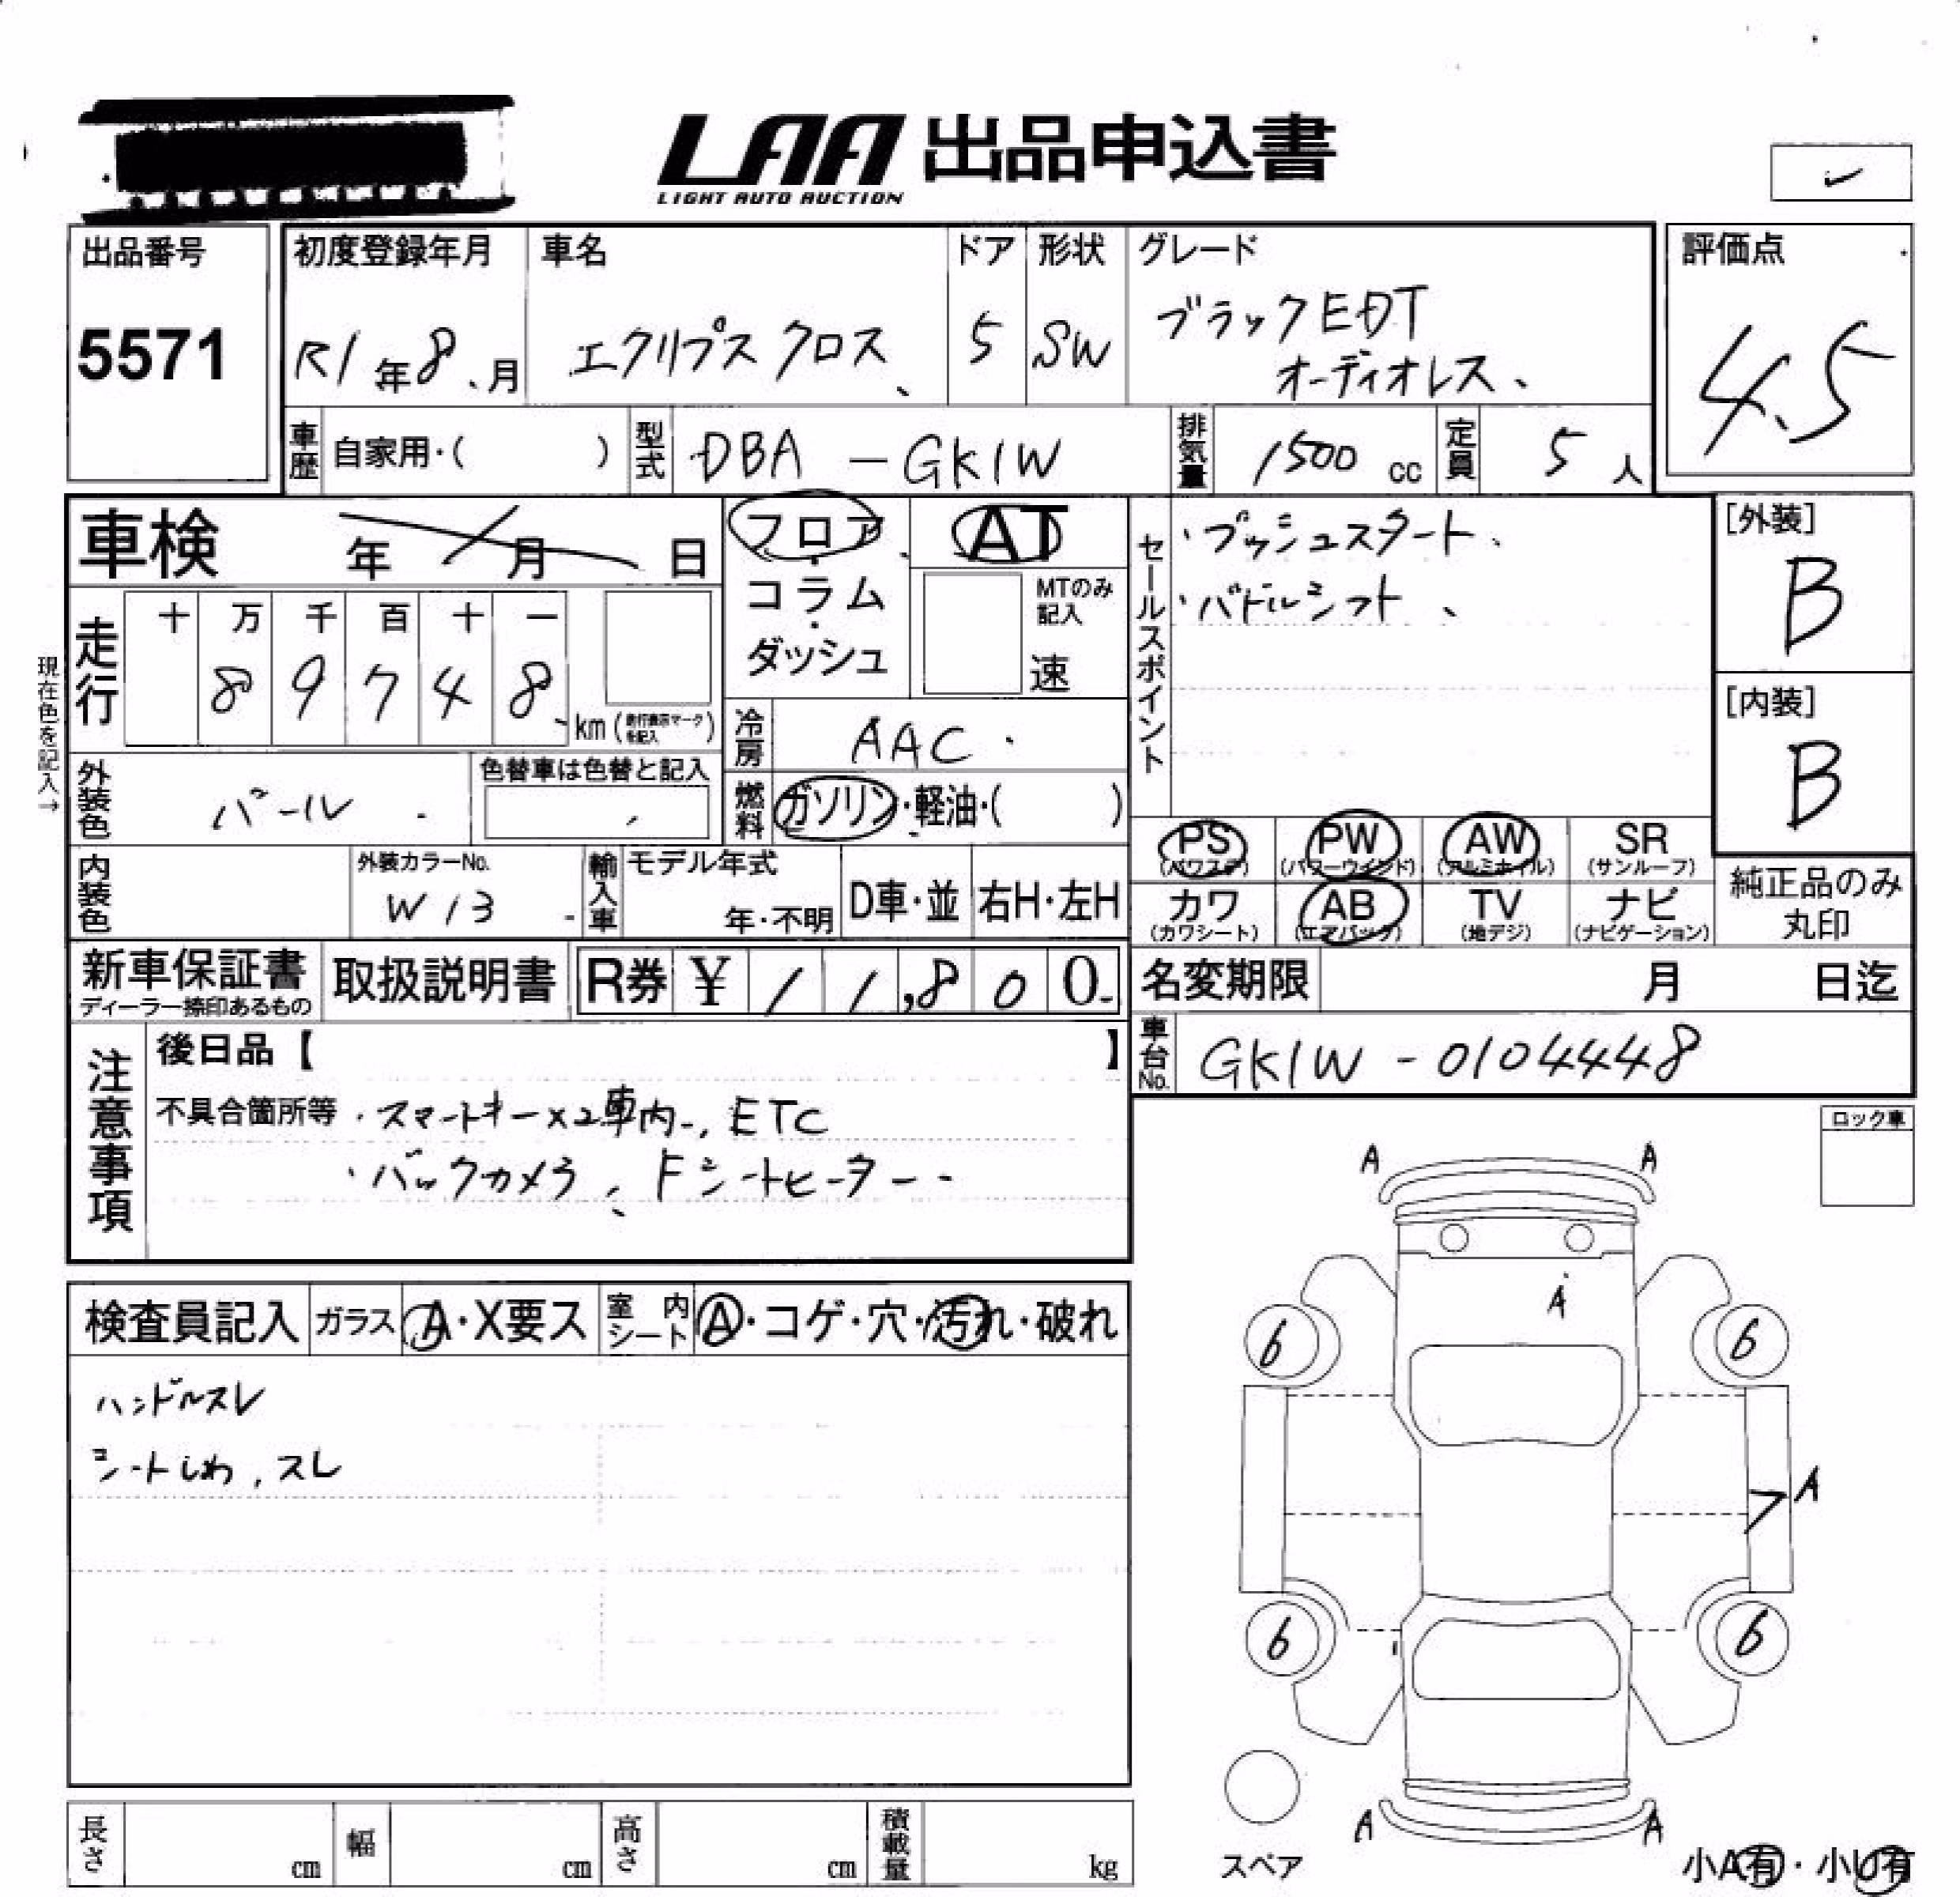 LAA 出品申込書
LIGHT AUTO AUCTION
出品番号
5571
初度登録年月
R1年8月
車名
エクリプス クロス
ドア
5
形状
SW
グレード
ブラックEDT
オーディオレス
評価点
4.5
車歴 自家用・( )
型式 DBA-GK1W
排気量 1500 cc
定員 5人
車検 年 月 日
フロア・コラム・ダッシュ
AT
MTのみ記入
速
セールスポイント
・プッシュスタート
・パドルシフト
[外装]
B
[内装]
B
現在色を記入→
走行 十 万 千 百 十 一
8 9 7 4 8
km (走行表示マークを記入)
冷房 AAC
外装色 パール
色替車は色替と記入
燃料 ガソリン・軽油・( )
PS (パワステ)
PW (パワーウインド)
AW (アルミホイル)
SR (サンルーフ)
カワ (カワシート)
AB (エアバック)
TV (地デジ)
ナビ (ナビゲーション)
純正品のみ丸印
内装色
外装カラーNo.
W13
輸入車
モデル年式
年・不明
D車・並
右H・左H
新車保証書
ディーラー捺印あるもの
取扱説明書
R券 ¥ 11,800
名変期限 月 日迄
車台No. GK1W-0104448
注意事項
後日品【 】
不具合箇所等 ・スマートキー×2車内、ETC
・バックカメラ、Fシートヒーター
ロック車
検査員記入
ガラス A・X要ス
室内シート A・コゲ・穴・汚れ・破れ
ハンドルスレ
シートしわ、スレ
A A
A
6 6
A
6 6
A A
スペア
小A有・小U有
長さ cm
幅 cm
高さ cm
積載量 kg